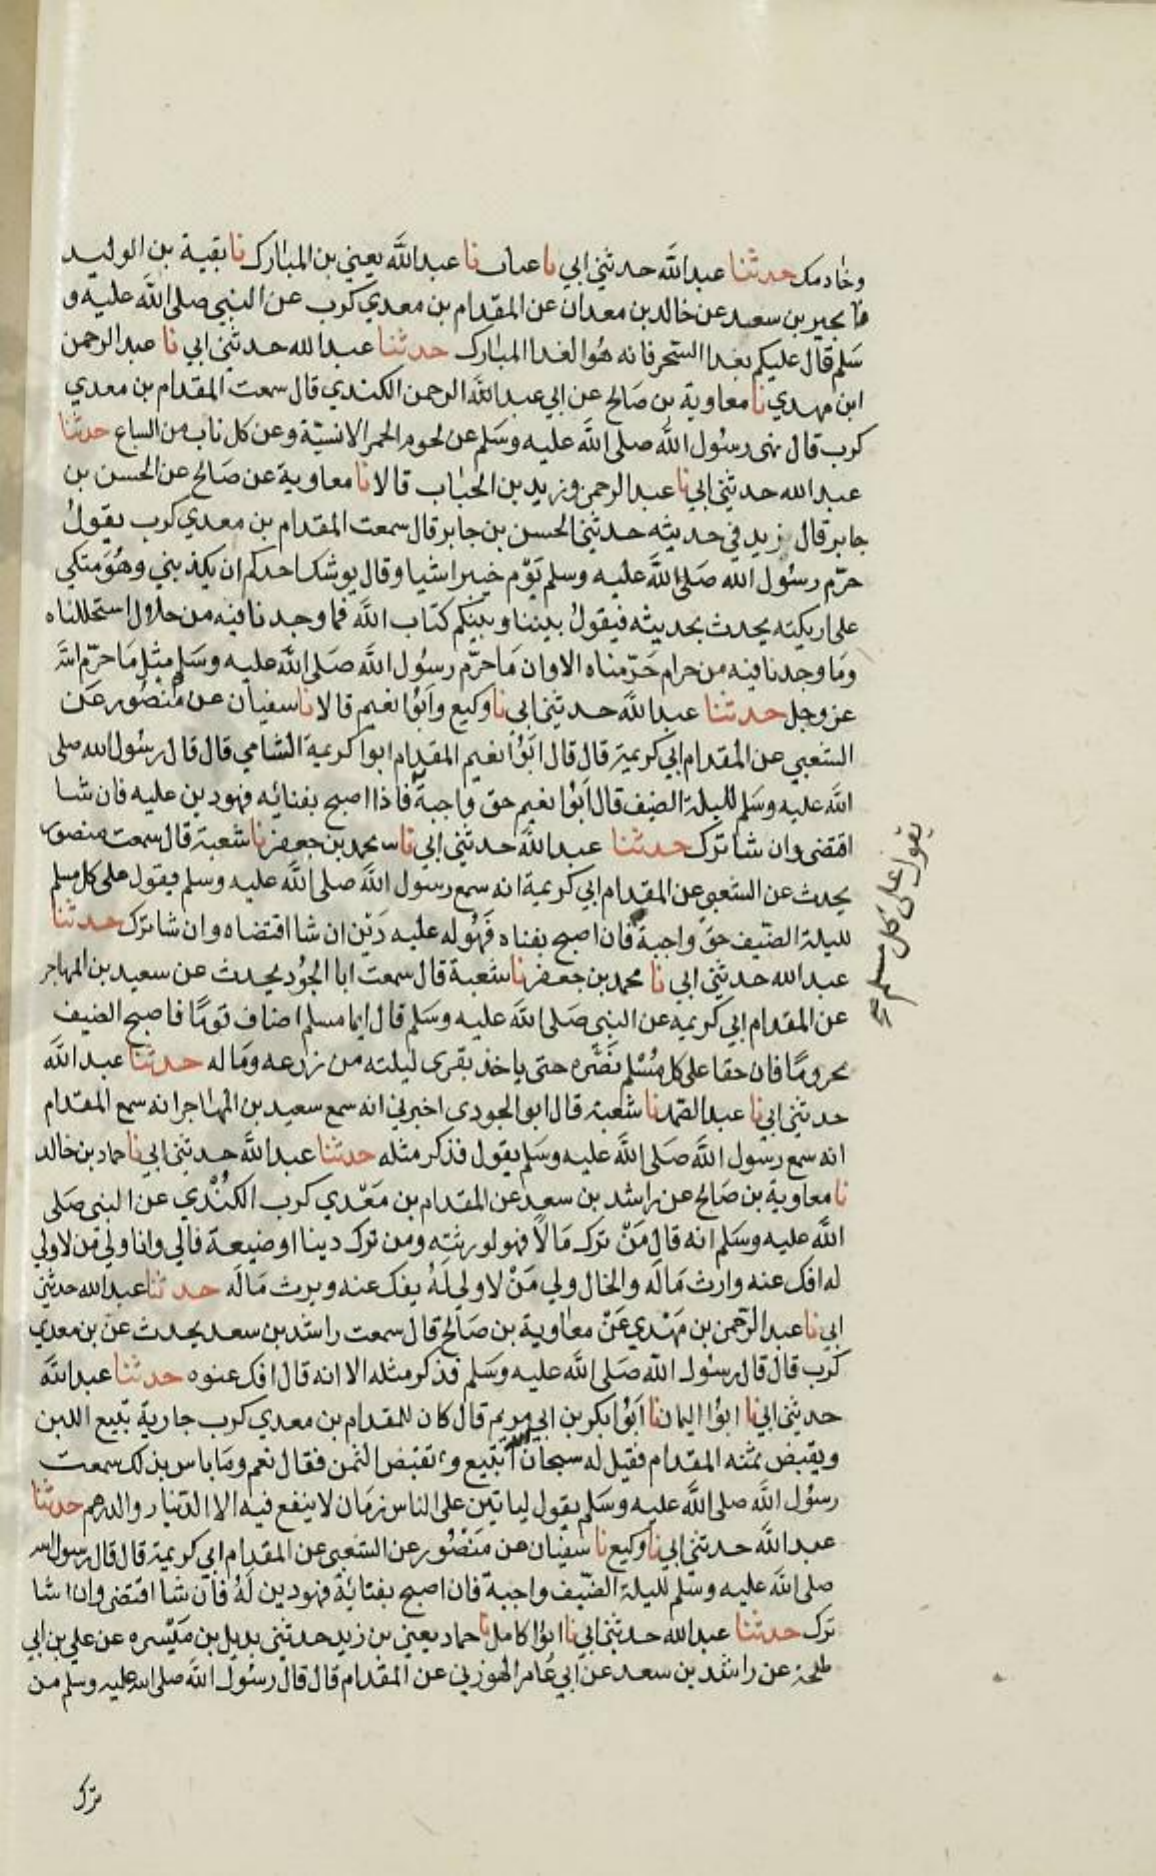 وخادمك حدثنا عبدالله حدثني ابي نا عتاب نا عبدالله يعني بن المبارك نا بقية بن الوليد
نا بحير بن سعيد عن خالد بن معدان عن المقدام بن معدي كرب عن النبي صلى الله عليه و
سلم قال عليكم بغدا السحر فانه هو الغدا المبارك حدثنا عبدالله حدثني ابي نا عبد الرحمن
ابن مهدي نا معاوية بن صالح عن ابي عبدالله الرحمن الكندي قال سمعت المقدام بن معدي
كرب قال نهى رسول الله صلى الله عليه وسلم عن لحوم الحمر الانسية وعن كل ناب من السباع حدثنا
عبدالله حدثني ابي نا عبد الرحمن وزيد بن الحباب قالا نا معاوية عن صالح عن الحسن بن
جابر قال زيد في حديثه حدثني الحسن بن جابر قال سمعت المقدام بن معدي كرب يقول
حرّم رسول الله صلى الله عليه وسلم يوم خيبر اشيا وقال يوشك احدكم ان يكذبني وهو متكي
على اريكته يحدث بحديثه فيقول بيننا وبينكم كتاب الله فما وجدنا فيه من حلال استحللناه
وما وجدنا فيه من حرام حرّمناه الا وان ما حرّم رسول الله صلى الله عليه وسلم مثل ما حرّم الله
عز وجل حدثنا عبدالله حدثني ابي نا وكيع وابوا نعيم قالا نا سفيان عن منصور عن
الشعبي عن المقدام ابي كريمة قال قال ابوا نعيم المقدام ابوا كريمة الشامي قال قال رسول الله صلى
الله عليه وسلم لليلة الضيف قال ابوا نعيم حق واجبة فاذا اصبح بفنائه فهو دين عليه فان شا
اقتضى وان شا ترك حدثنا عبدالله حدثني ابي نا محمد بن جعفر نا شعبة قال سمعت منصور
يحدث عن الشعبي عن المقدام ابي كريمة انه سمع رسول الله صلى الله عليه وسلم يقول على كل مسلم
لليلة الضيف حق واجبة فان اصبح بفناه فهو له عليه دين ان شا اقتضاه وان شا ترك حدثنا
عبدالله حدثني ابي نا محمد بن جعفر نا شعبة قال سمعت ابا الجودي يحدث عن سعيد بن المهاجر
عن المقدام ابي كريمه عن النبي صلى الله عليه وسلم قال ايما مسلم اضاف قوما فاصبح الضيف
محروما فان حقا على كل مسلم نصره حتى ياخذ بقرى ليلته من زرعه وماله حدثنا عبدالله
حدثني ابي نا عبد الصمد نا شعبة قال ابو الجودى اخبرني انه سمع سعيد بن المهاجر انه سمع المقدام
انه سمع رسول الله صلى الله عليه وسلم يقول فذكر مثله حدثنا عبدالله حدثني ابي نا حماد بن خالد
نا معاوية بن صالح عن راشد بن سعد عن المقدام بن معدي كرب الكندي عن النبي صلى
الله عليه وسلم انه قال من ترك مالا فهو لورثته ومن ترك دينا او ضيعة فالي وانا ولي من لا ولي
له افك عنه وارث ماله والخال ولي من لا ولي له يفك عنه ويرث ماله حدثنا عبدالله حدثني
ابي نا عبد الرحمن بن مهدي عن معاوية بن صالح قال سمعت راشد بن سعد يحدث عن بن معدي
كرب قال قال رسول الله صلى الله عليه وسلم فذكر مثله الا انه قال افك عنوه حدثنا عبدالله
حدثني ابي نا ابوا اليمان نا ابوا بكر بن ابي مريم قال كان للمقدام بن معدي كرب جارية تبيع اللبن
ويقبض ثمنه المقدام فقيل له سبحان الله اتبيع وتقبض الثمن فقال نعم وما باس بذلك سمعت
رسول الله صلى الله عليه وسلم يقول لياتين على الناس زمان لا ينفع فيه الا الدينار والدرهم حدثنا
عبدالله حدثني ابي نا وكيع نا سفيان عن منصور عن الشعبي عن المقدام ابي كريمة قال قال رسول الله
صلى الله عليه وسلم لليلة الضيف واجبة فان اصبح بفنائه فهو دين له فان شا اقتضى وان شا
ترك حدثنا عبدالله حدثني ابي نا ابوا كامل نا حماد يعني بن زيد حدثني بديل بن ميسره عن علي بن ابي
طلحة عن راشد بن سعد عن ابي عامر الهوزني عن المقدام قال قال رسول الله صلى الله عليه وسلم من
يقول على كل مسلم صح
ترك